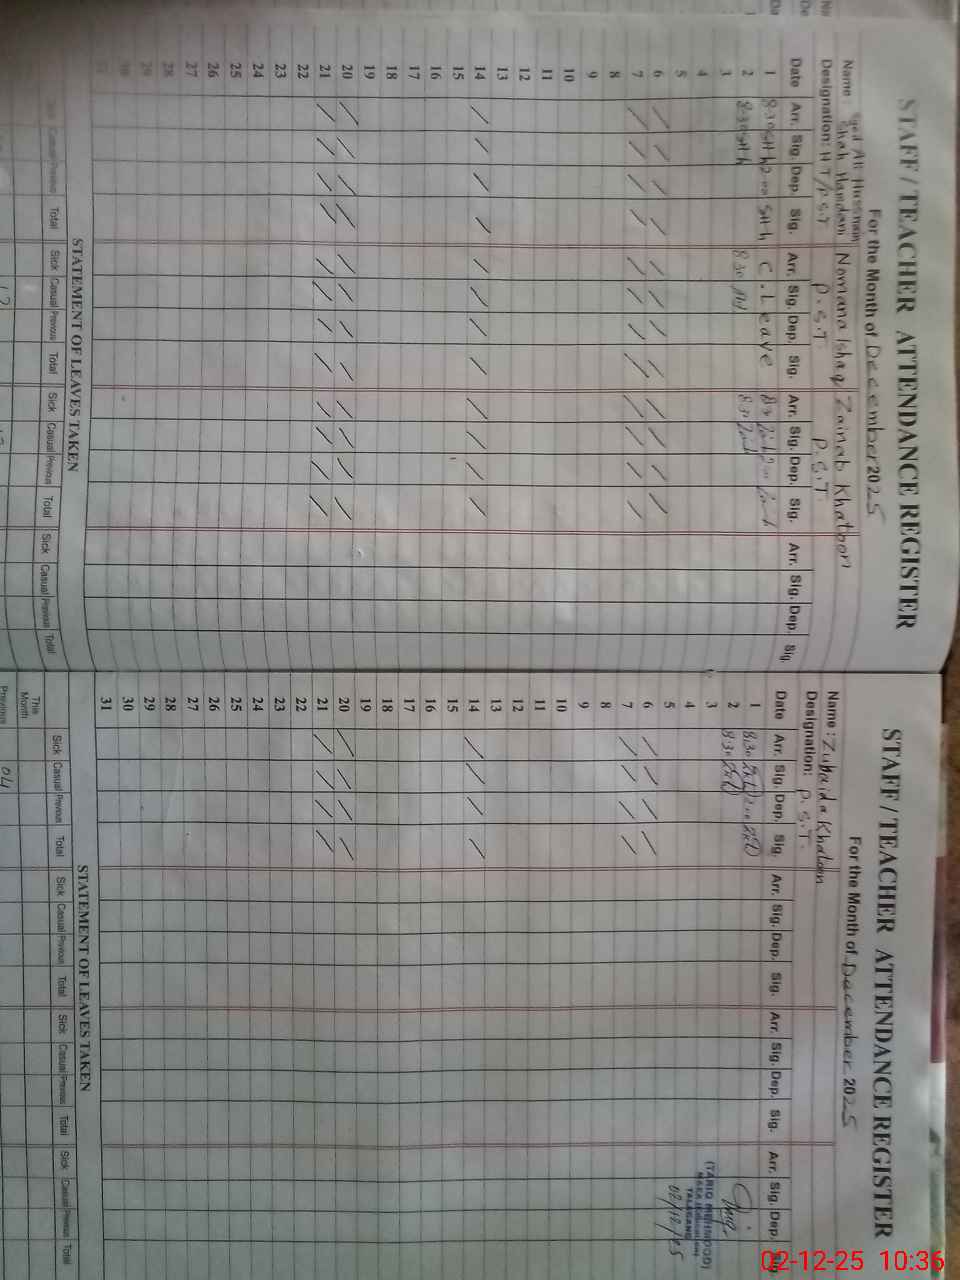 STAFF / TEACHER ATTENDANCE REGISTER
For the Month of December 2025
Name: Syed Ali Hussnain Shah Hamdani Nomana Ishaq Zainab Khatoon
Designation: H T/P.S.T P.S.T. P.S.T.
Date Arr. Sig. Dep. Sig. Arr. Sig. Dep. Sig. Arr. Sig. Dep. Sig. Arr. Sig. Dep. Sig.
1 8:30 SHh 2:00 SHh C. Leave 8:30
2 8:30 SHh 8:30 8:30
3
4
5
6
7
8
9
10
11
12
13
14
15
16
17
18
19
20
21
22
23
24
25
26
27
28
29
30
31
Casual Previous Total Sick Casual Previous Total Sick Casual Previous Total Sick Casual Previous Total
STATEMENT OF LEAVES TAKEN
STAFF / TEACHER ATTENDANCE REGISTER
For the Month of December 2025
Name: Zubaida Khatoon
Designation: P.S.T.
Date Arr. Sig. Dep. Sig. Arr. Sig. Dep. Sig. Arr. Sig. Dep. Sig. Arr. Sig. Dep. Sig.
1 8:30 2:00
2 8:30
3
4
5
6
7
8
9
10
11
12
13
14
15
16
17
18
19
20
21
22
23
24
25
26
27
28
29
30
31
(TARIQ MEHMOOD)
TALAGANG
02/12/25
Sick Casual Previous Total Sick Casual Previous Total Sick Casual Previous Total Sick Casual Previous Total
STATEMENT OF LEAVES TAKEN
This Month
04
Previous
02-12-25 10:36